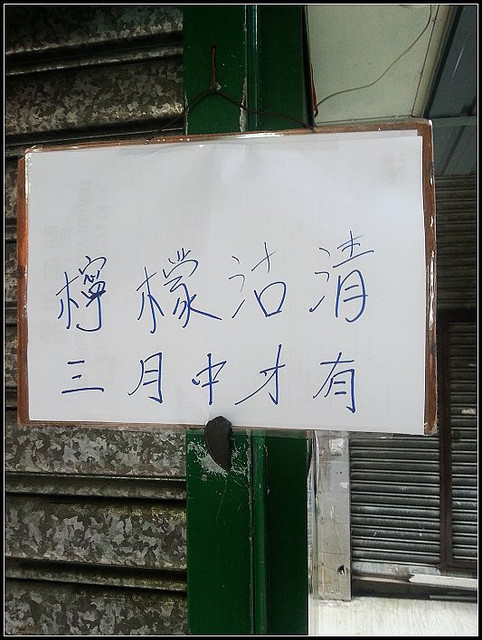 檸檬沽清
三月中才有